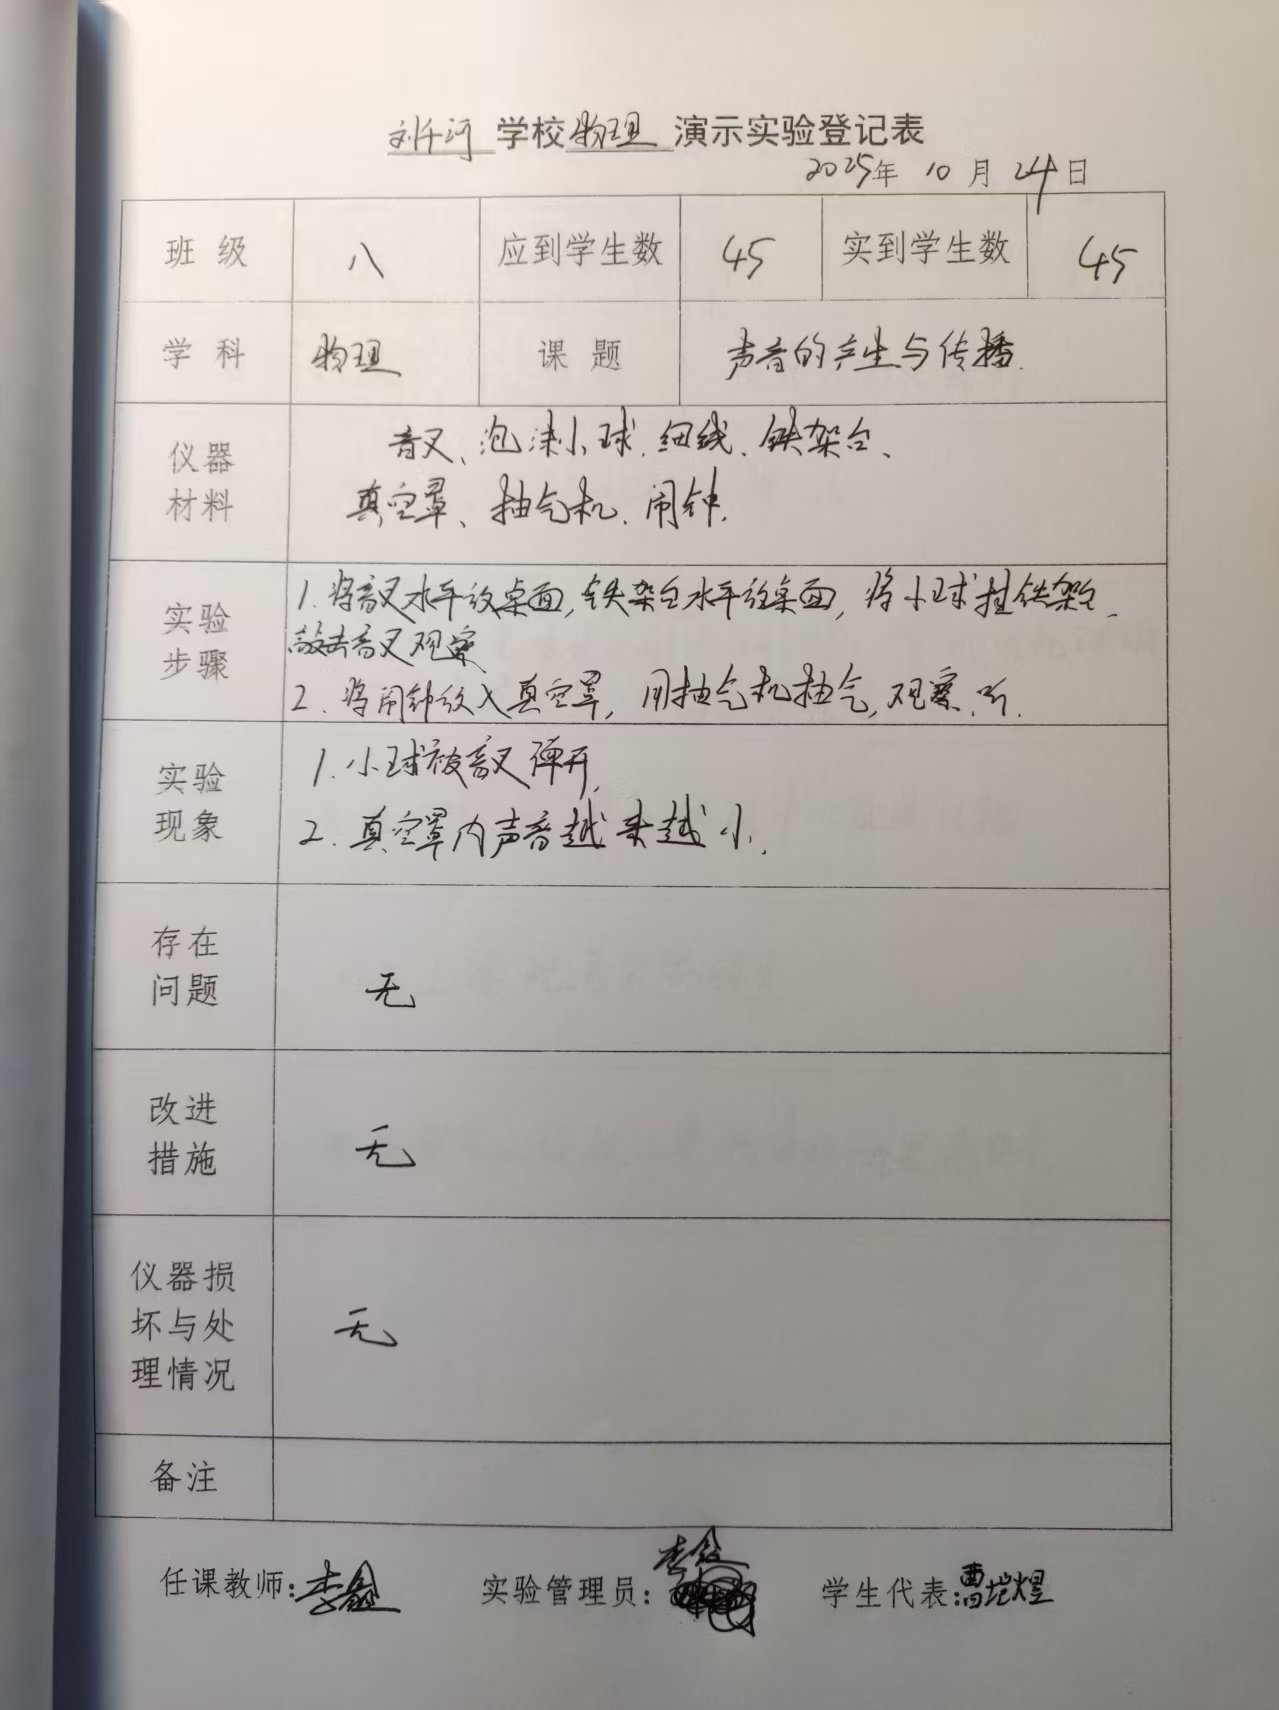 刘千河学校物理演示实验登记表
2025年10月24日
班级 八 应到学生数 45 实到学生数 45
学科 物理 课题 声音的产生与传播.
仪器材料 音叉、泡沫小球、细线、铁架台、
真空罩、抽气机、闹钟.
实验步骤 1.将音叉水平放桌面,铁架台水平放桌面,将小球挂铁架台.
敲击音叉观察
2.将闹钟放入真空罩,用抽气机抽气,观察.听.
实验现象 1.小球被音叉弹开.
2.真空罩内声音越来越小.
存在问题 无
改进措施 无
仪器损坏与处理情况 无
备注
任课教师:李鑫 实验管理员:李鑫 学生代表:曹垲煜